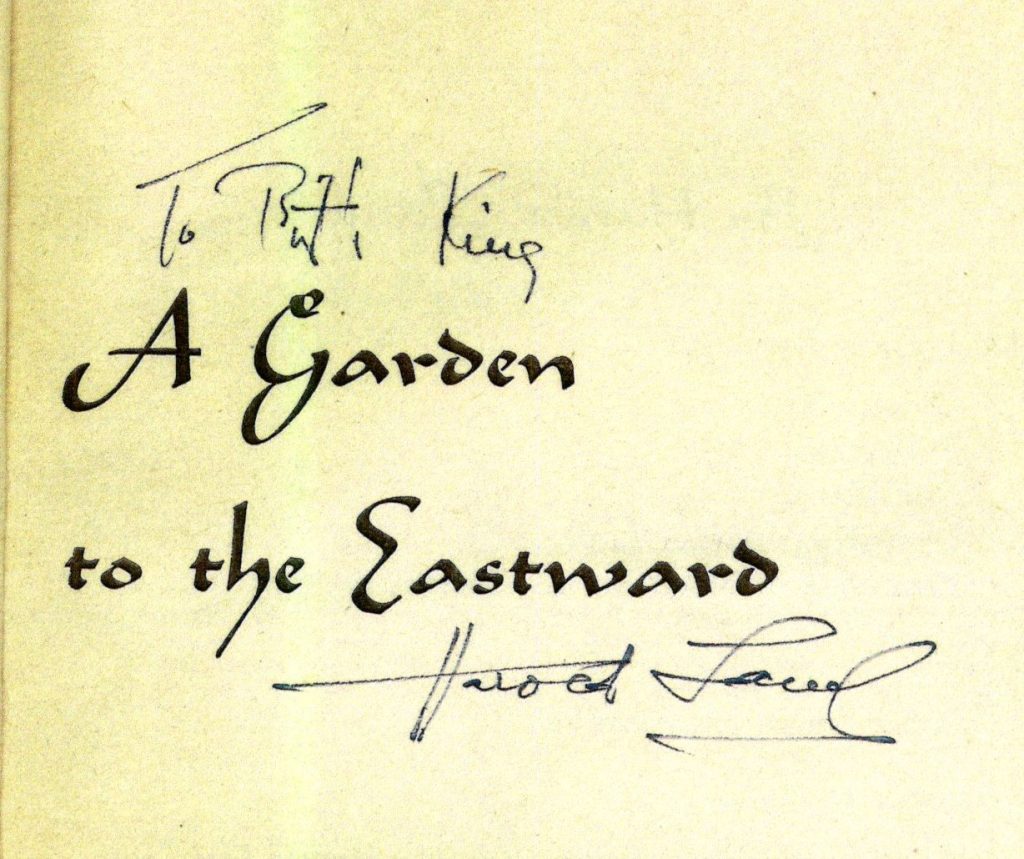 To King
A Garden
to the Eastward
Harold Lamb